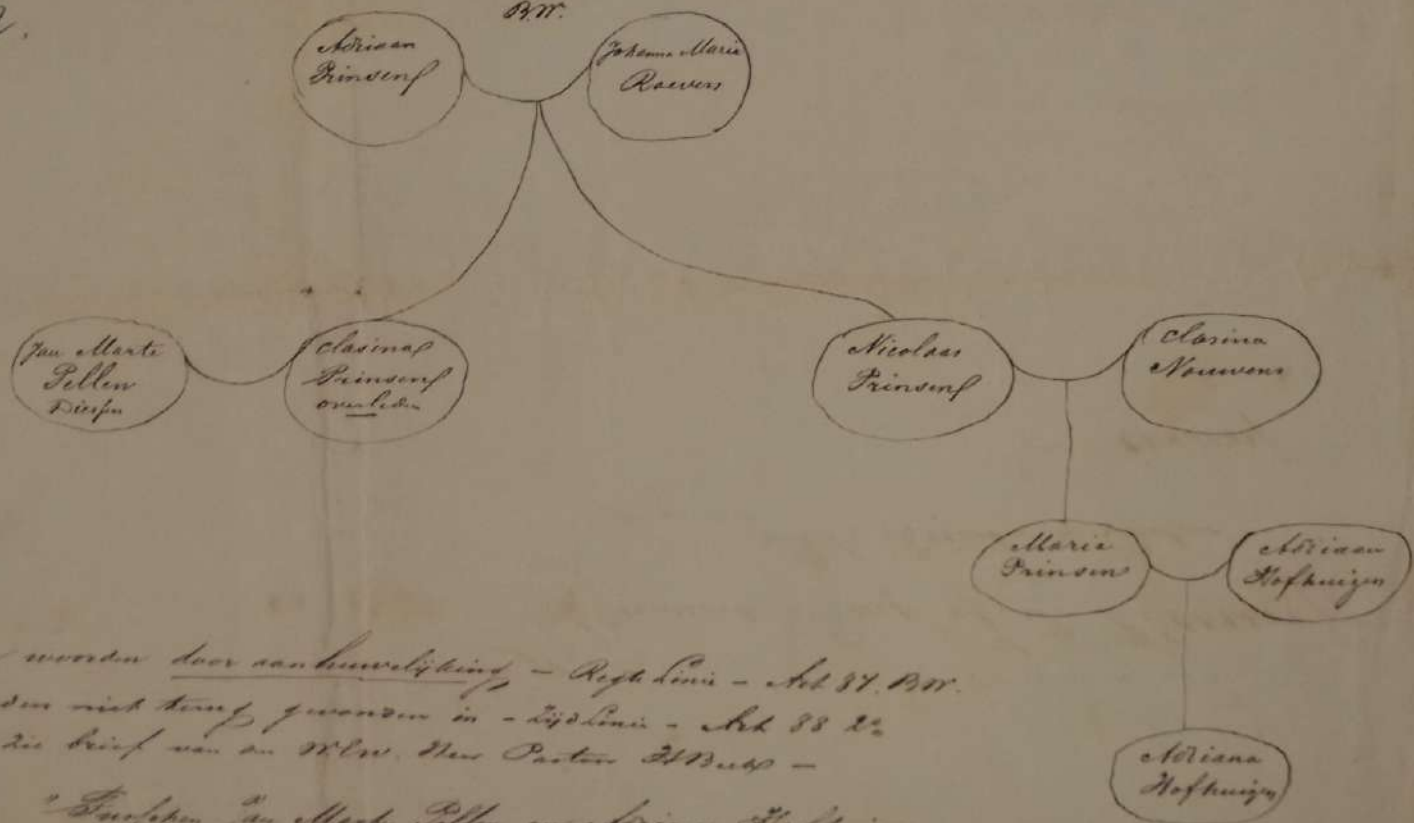 B.W.
Adriaan
Prinsens
Johanna Maria
Roevers
Jan Marte
Pellen
Diessen
Clasina
Prinsens
overleden
Nicolaas
Prinsens
Clasina
Nouwens
Maria
Prinsens
Adriaan
Hofhuizen
woorden door aanhuwelijking – Regte Linie – Art 87. B.W.
niet terug gevonden in – Zijd Linie – Art 88 2º
Zie brief van den W.Erw. Heer Pastoor
Adriana
Hofhuizen
Jan Marte